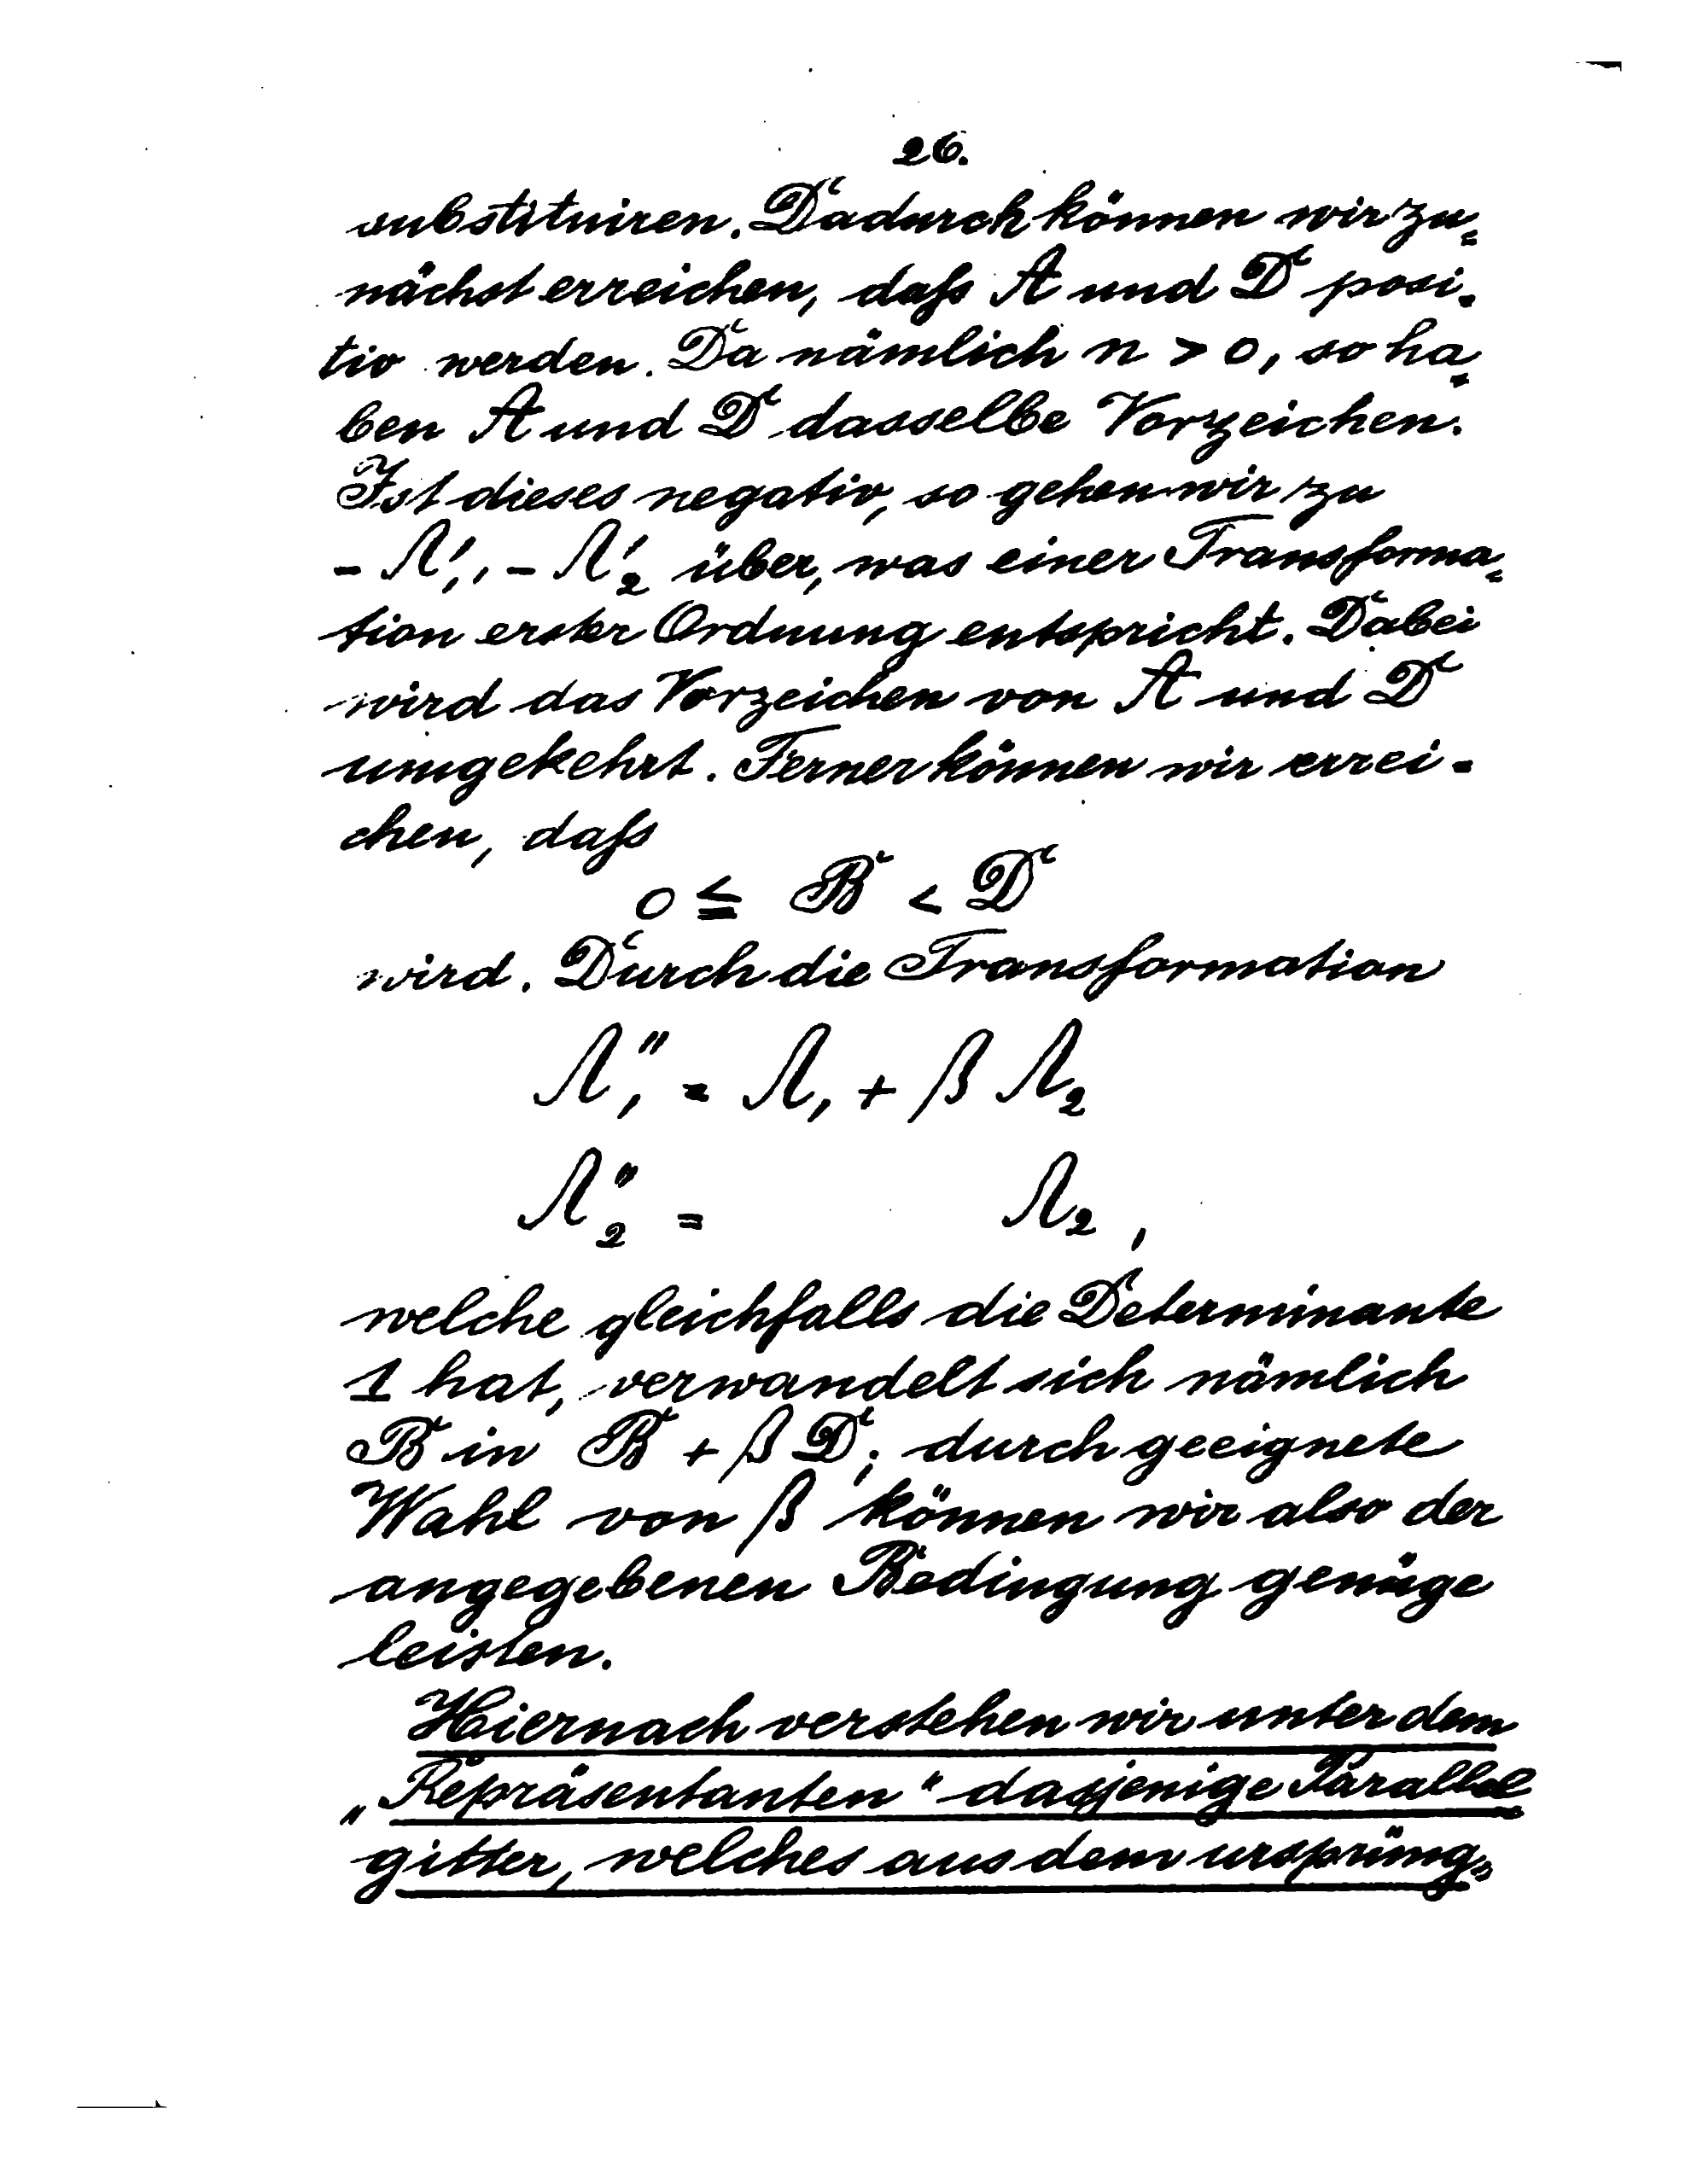 26.
substituiren. Dadurch können wir zu=
nächst erreichen, daſs A und D posi=
tiv werden. Da nämlich n > 0, so ha=
ben A und D dasselbe Vorzeichen.
Ist dieses negativ, so gehen wir zu
- Λ'₁, - Λ'₂ über, was einer Transforma=
tion erster Ordnung entspricht. Dabei
wird das Vorzeichen von A und D
umgekehrt. Ferner können wir errei=
chen, daſs
0 ≦ B < D
wird. Durch die Transformation
Λ''₁ = Λ₁ + β Λ₂
Λ''₂ = Λ₂,
welche gleichfalls die Determinante
1 hat, verwandelt sich nämlich
B in B + β D; durch geeignete
Wahl von β können wir also der
angegebenen Bedingung genüge
leisten.
Hiernach verstehen wir unter dem
„Repräsentanten" dasjenige Parallel
gitter, welches aus dem ursprüng=